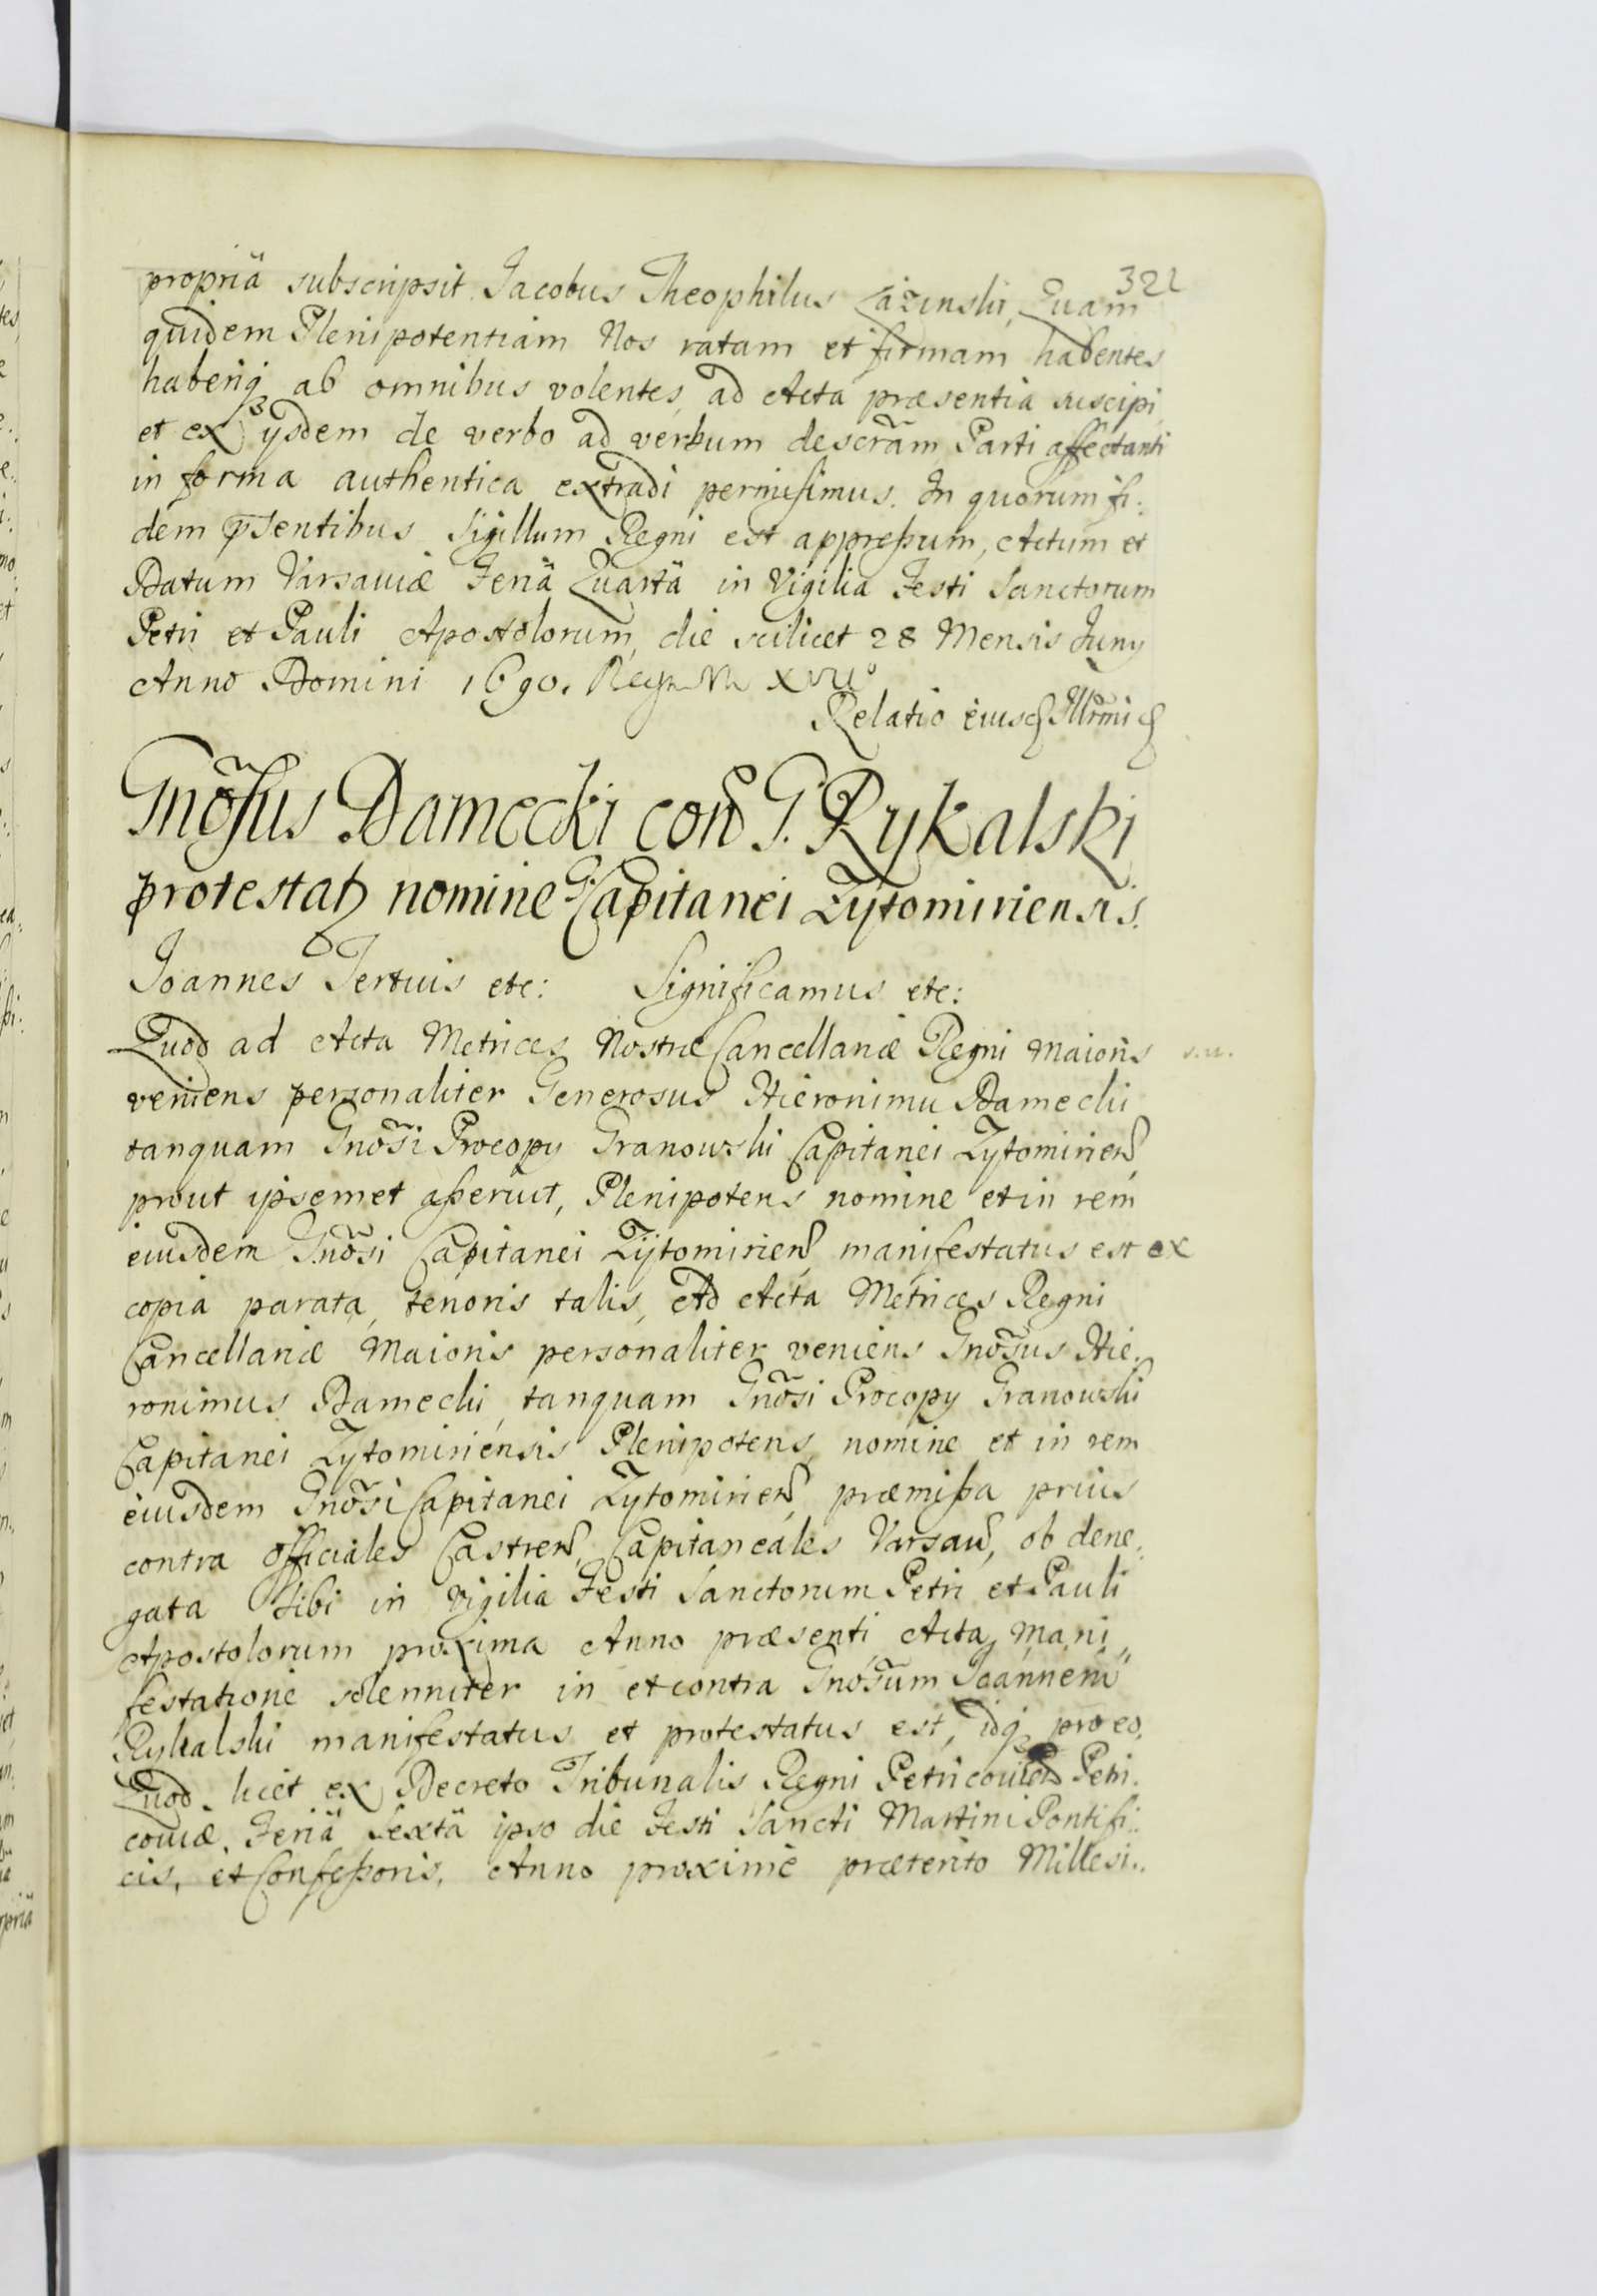 321
propriâ subscripsit Jacobus Theophilus Łazinski, Quam
quidem Plenipotentiam Nos ratam et firmam habentes
haberiq3 ab omnibus volentes, ad Acta præsentia suscipi
et ex ijsdem de verbo ad verbum descrãm Parti affectanti
in forma authentica extradi permisimus. In quorum fi:
dem p̃sentibus Sigillum Regni est appressum, Actum et
Datum Varsaviæ Feriâ Quartâ in Vigilia Festi Sanctorum
Petri et Pauli Apostolorum, die scilicet 28 Mensis Juny
Anno Domini 1690. Regni Nri XVII°
Relatio eiusd Illrmi
Gnõsus Damecki con G. Rykalski
protestatz nomine G. Capitanei Zytomiriensis.
Joannes Tertius etc: Significamus etc:
Quod ad Acta Metrices Nostræ Cancellariæ Regni Maioris
veniens personaliter Generosus Hieronimu Damecki
tanquam Gnõsi Procopy Granowski Capitanei Zytomirien,
prout ipsemet asseruit, Plenipotens nomine et in rem
eiusdem Gnõsi Capitanei Zÿtomirien, manifestatus est ex
copia parata, tenoris talis, Ad Acta Metrices Regni
Cancellariæ Maioris personaliter veniens Gnõsus Hie,
ronimus Damecki, tanquam Gnõsi Procopy Granowski
Capitanei Zytomiriensis Plenipotens, nomine et in rem
eiusdem Gnõsi Capitanei Zytomirien, præmissa prius
contra Officiales Castren, Capitaneales Varsav, ob dene,
gata Sibi in Vigilia Festi Sanctorum Petri et Pauli
Apostolorum proxima Anno præsenti, Acta, Mani,
festatione solenniter in et contra Gnõsum Joannem
Rykalski manifestatus et protestatus est, idq3 pro eo,
Quod licet ex Decreto Tribunalis Regni Petricovien Petri.
coviæ, Feriâ Sextâ ipso die Festi Sancti Martini Pontifi:
cis, et Confessoris, Anno proximè præterito Millesi..